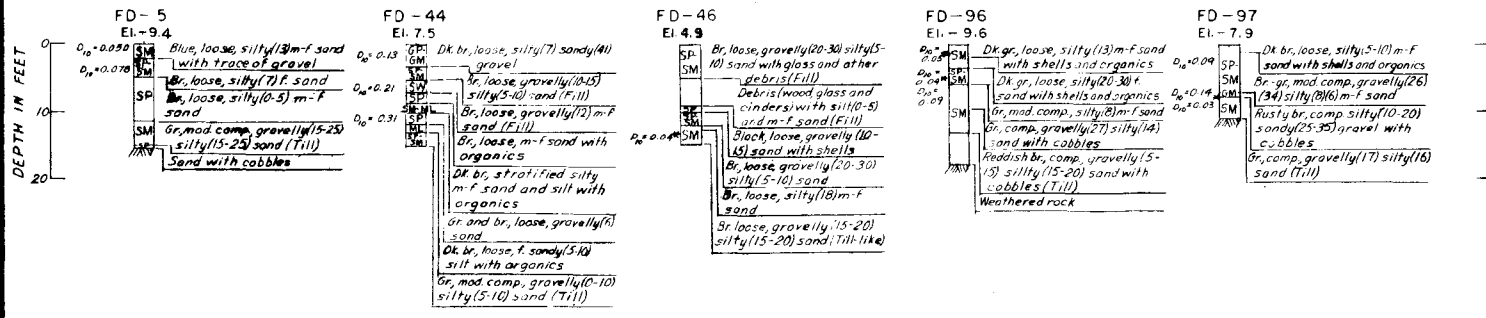 DEPTH IN FEET
0
10
20
FD-5
El.-9.4
D10=0.050
D10=0.078
SM
SP-
SM
SP
SM
SP
Blue, loose, silty(13) m-f sand
with trace of gravel
Br, loose, silty(7) f. sand
Br, loose, silty(0-5) m-f
sand
Gr, mod. comp, gravelly(15-25)
silty(15-25) sand (Till)
Sand with cobbles
FD-44
El. 7.5
D10=0.13
D10=0.21
D10=0.31
GP-
GM
SP-
SM
SW
SP
SM-M
SP
ML
SP-
SM
Dk. br, loose, silty(7) sandy(41)
gravel
Br, loose, gravelly(10-15)
silty(5-10) sand (Fill)
Br, loose, gravelly(12) m-f
sand (Fill)
Br, loose, m-f sand with
organics
Dk. br, stratified silty
m-f sand and silt with
organics
Gr. and br, loose, gravelly(6)
sand
Dk. br, loose, f. sandy(5-10)
silt with organics
Gr, mod. comp., gravelly(0-10)
silty(5-10) sand (Till)
FD-46
El. 4.9
D10=0.04
SP-
SM
SP
SP-
SM
SM
Br, loose, gravelly(20-30) silty(5-
10) sand with glass and other
debris (Fill)
Debris (wood, glass and
cinders) with silt(0-5)
and m-f sand (Fill)
Black, loose, gravelly (10-
15) sand with shells
Br, loose, gravelly(20-30)
silty(5-10) sand
Br, loose, silty(18) m-f
sand
Br. loose, gravelly (15-20)
silty(15-20) sand (Till-like)
FD-96
El. -9.6
D10=
0.05
D10=
0.04
D10=
0.09
SM
SP-
SM
SM
Dk gr, loose, silty(13) m-f sand
with shells and organics
Dk. gr, loose, silty(20-30) f.
sand with shells and organics
Gr, mod. comp., silty(8) m-f sand
Gr, comp, gravelly(27) silty(14)
sand with cobbles
Reddish br, comp, gravelly (5-
15) sillty (15-20) sand with
cobbles (Till)
Weathered rock
FD-97
El. -7.9
D10=0.09
D10=0.14
D10=0.03
SP-
SM
GM
SM
Dk. br, loose, silty(5-10) m-f
sand with shells and organics
Br-gr, mod. comp, gravelly(26)
(34) silty(8)(6) m-f sand
Rusty br, comp, silty(10-20)
sandy(25-35) gravel with
cobbles
Gr, comp, gravelly(17) silty(16)
sand (Till)